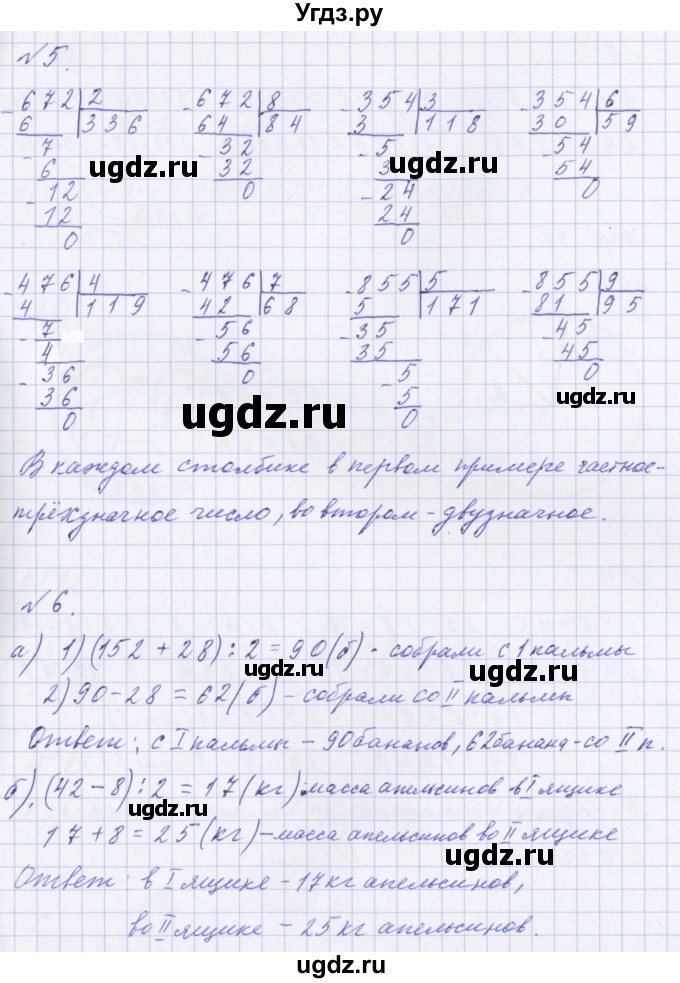 Угдз.ру
№5.
-672|2 -672|8 -354|3 -354|6
6 |336 64 |84 3 |118 30 |59
-7 -32 -5 -54
6 32 3 54
-12 0 -24 0
12 24
0 0
ugdz.ru ugdz.ru ugdz.ru
-476|4 -476|7 -855|5 -855|9
4 |119 42 |68 5 |171 81 |95
-7 -56 -35 -45
4 56 35 45
-36 0 -5 0
36 5
0 0
ugdz.ru ugdz.ru
В каждом столбике в первом примере частное-
трёхзначное число, во втором - двузначное.
№6.
а) 1) (152 + 28) : 2 = 90 (б) - собрали с 1 пальмы
ugdz.ru ugdz.ru
2) 90 - 28 = 62 (б) - собрали со II пальмы
Ответ: с I пальмы - 90 бананов, 62 банана - со II п.
б). (42 - 8) : 2 = 17 (кг) - масса апельсинов в I ящике
ugdz.ru
17 + 8 = 25 (кг) - масса апельсинов во II ящике
ugdz.ru
Ответ: в I ящике - 17 кг апельсинов,
во II ящике - 25 кг апельсинов.
ugdz.ru